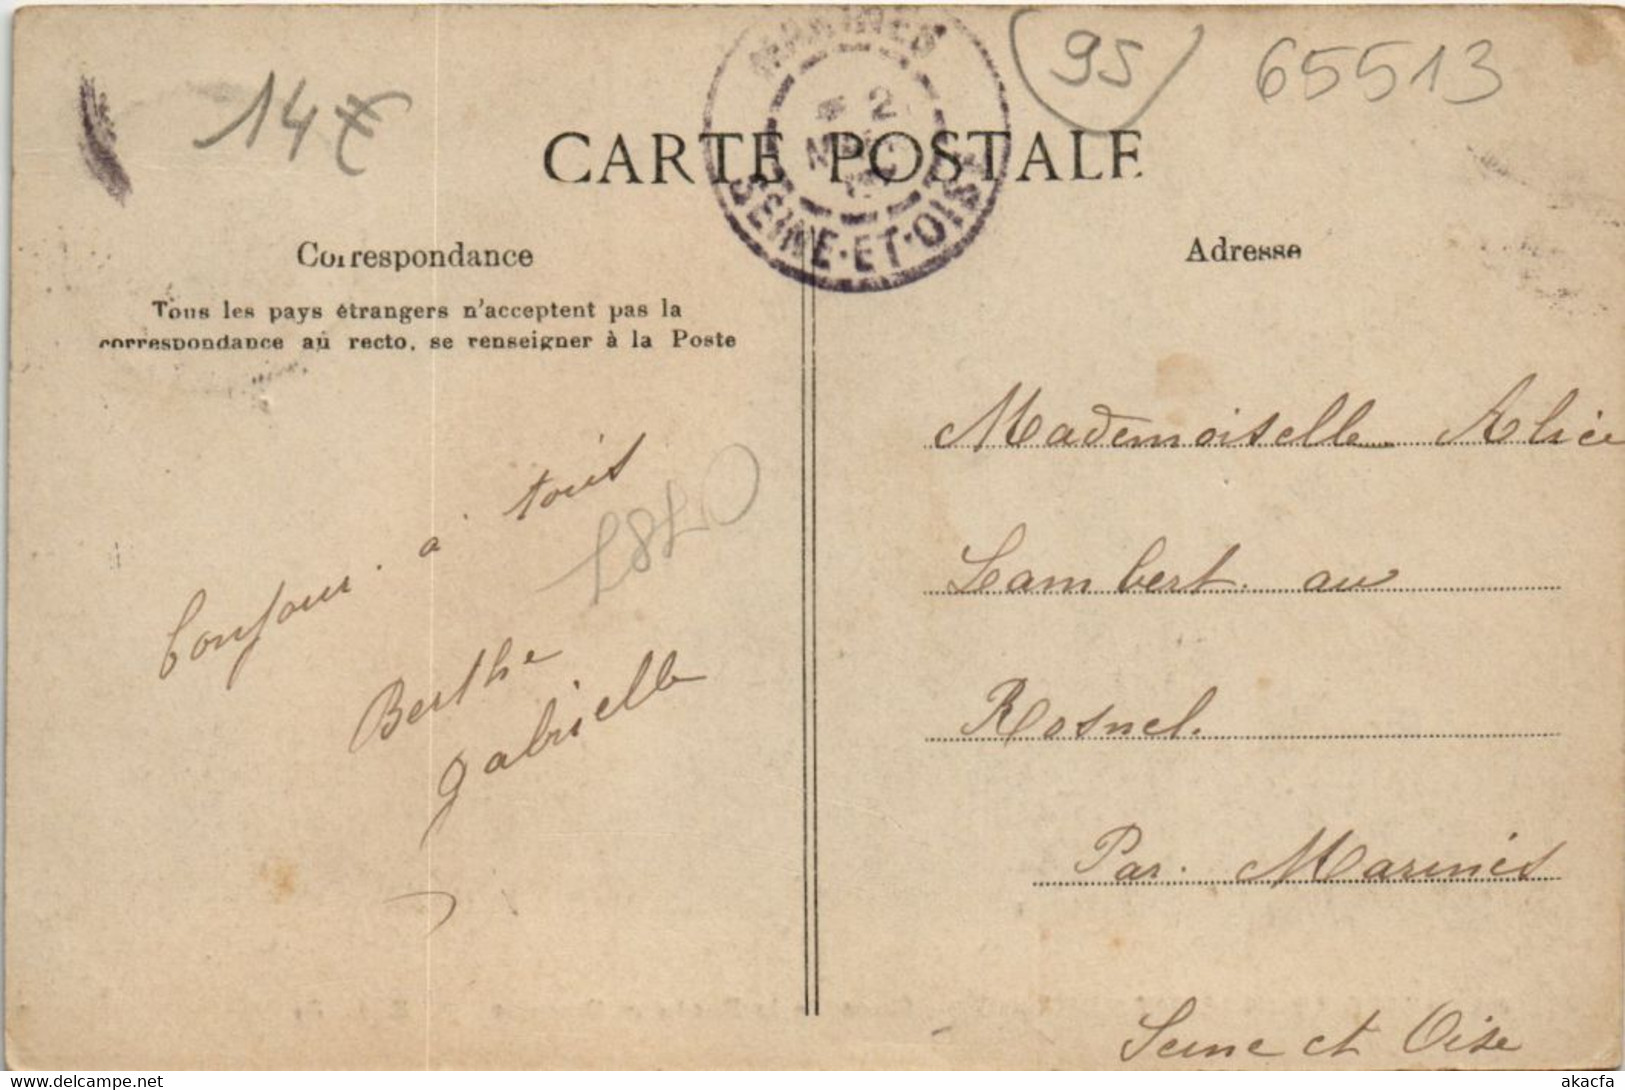 14€
(95)
65513
MARINES
2
SEINE-ET-OISE
CARTE POSTALE
Correspondance
Tous les pays étrangers n'acceptent pas la
correspondance au recto, se renseigner à la Poste
Adresse
bonjour à tous
Berthe
gabrielle
Mademoiselle Alice
Lambert au
Rosnel.
Par Marines
Seine et Oise
akacfa
https://www.delcampe.net/akacfa